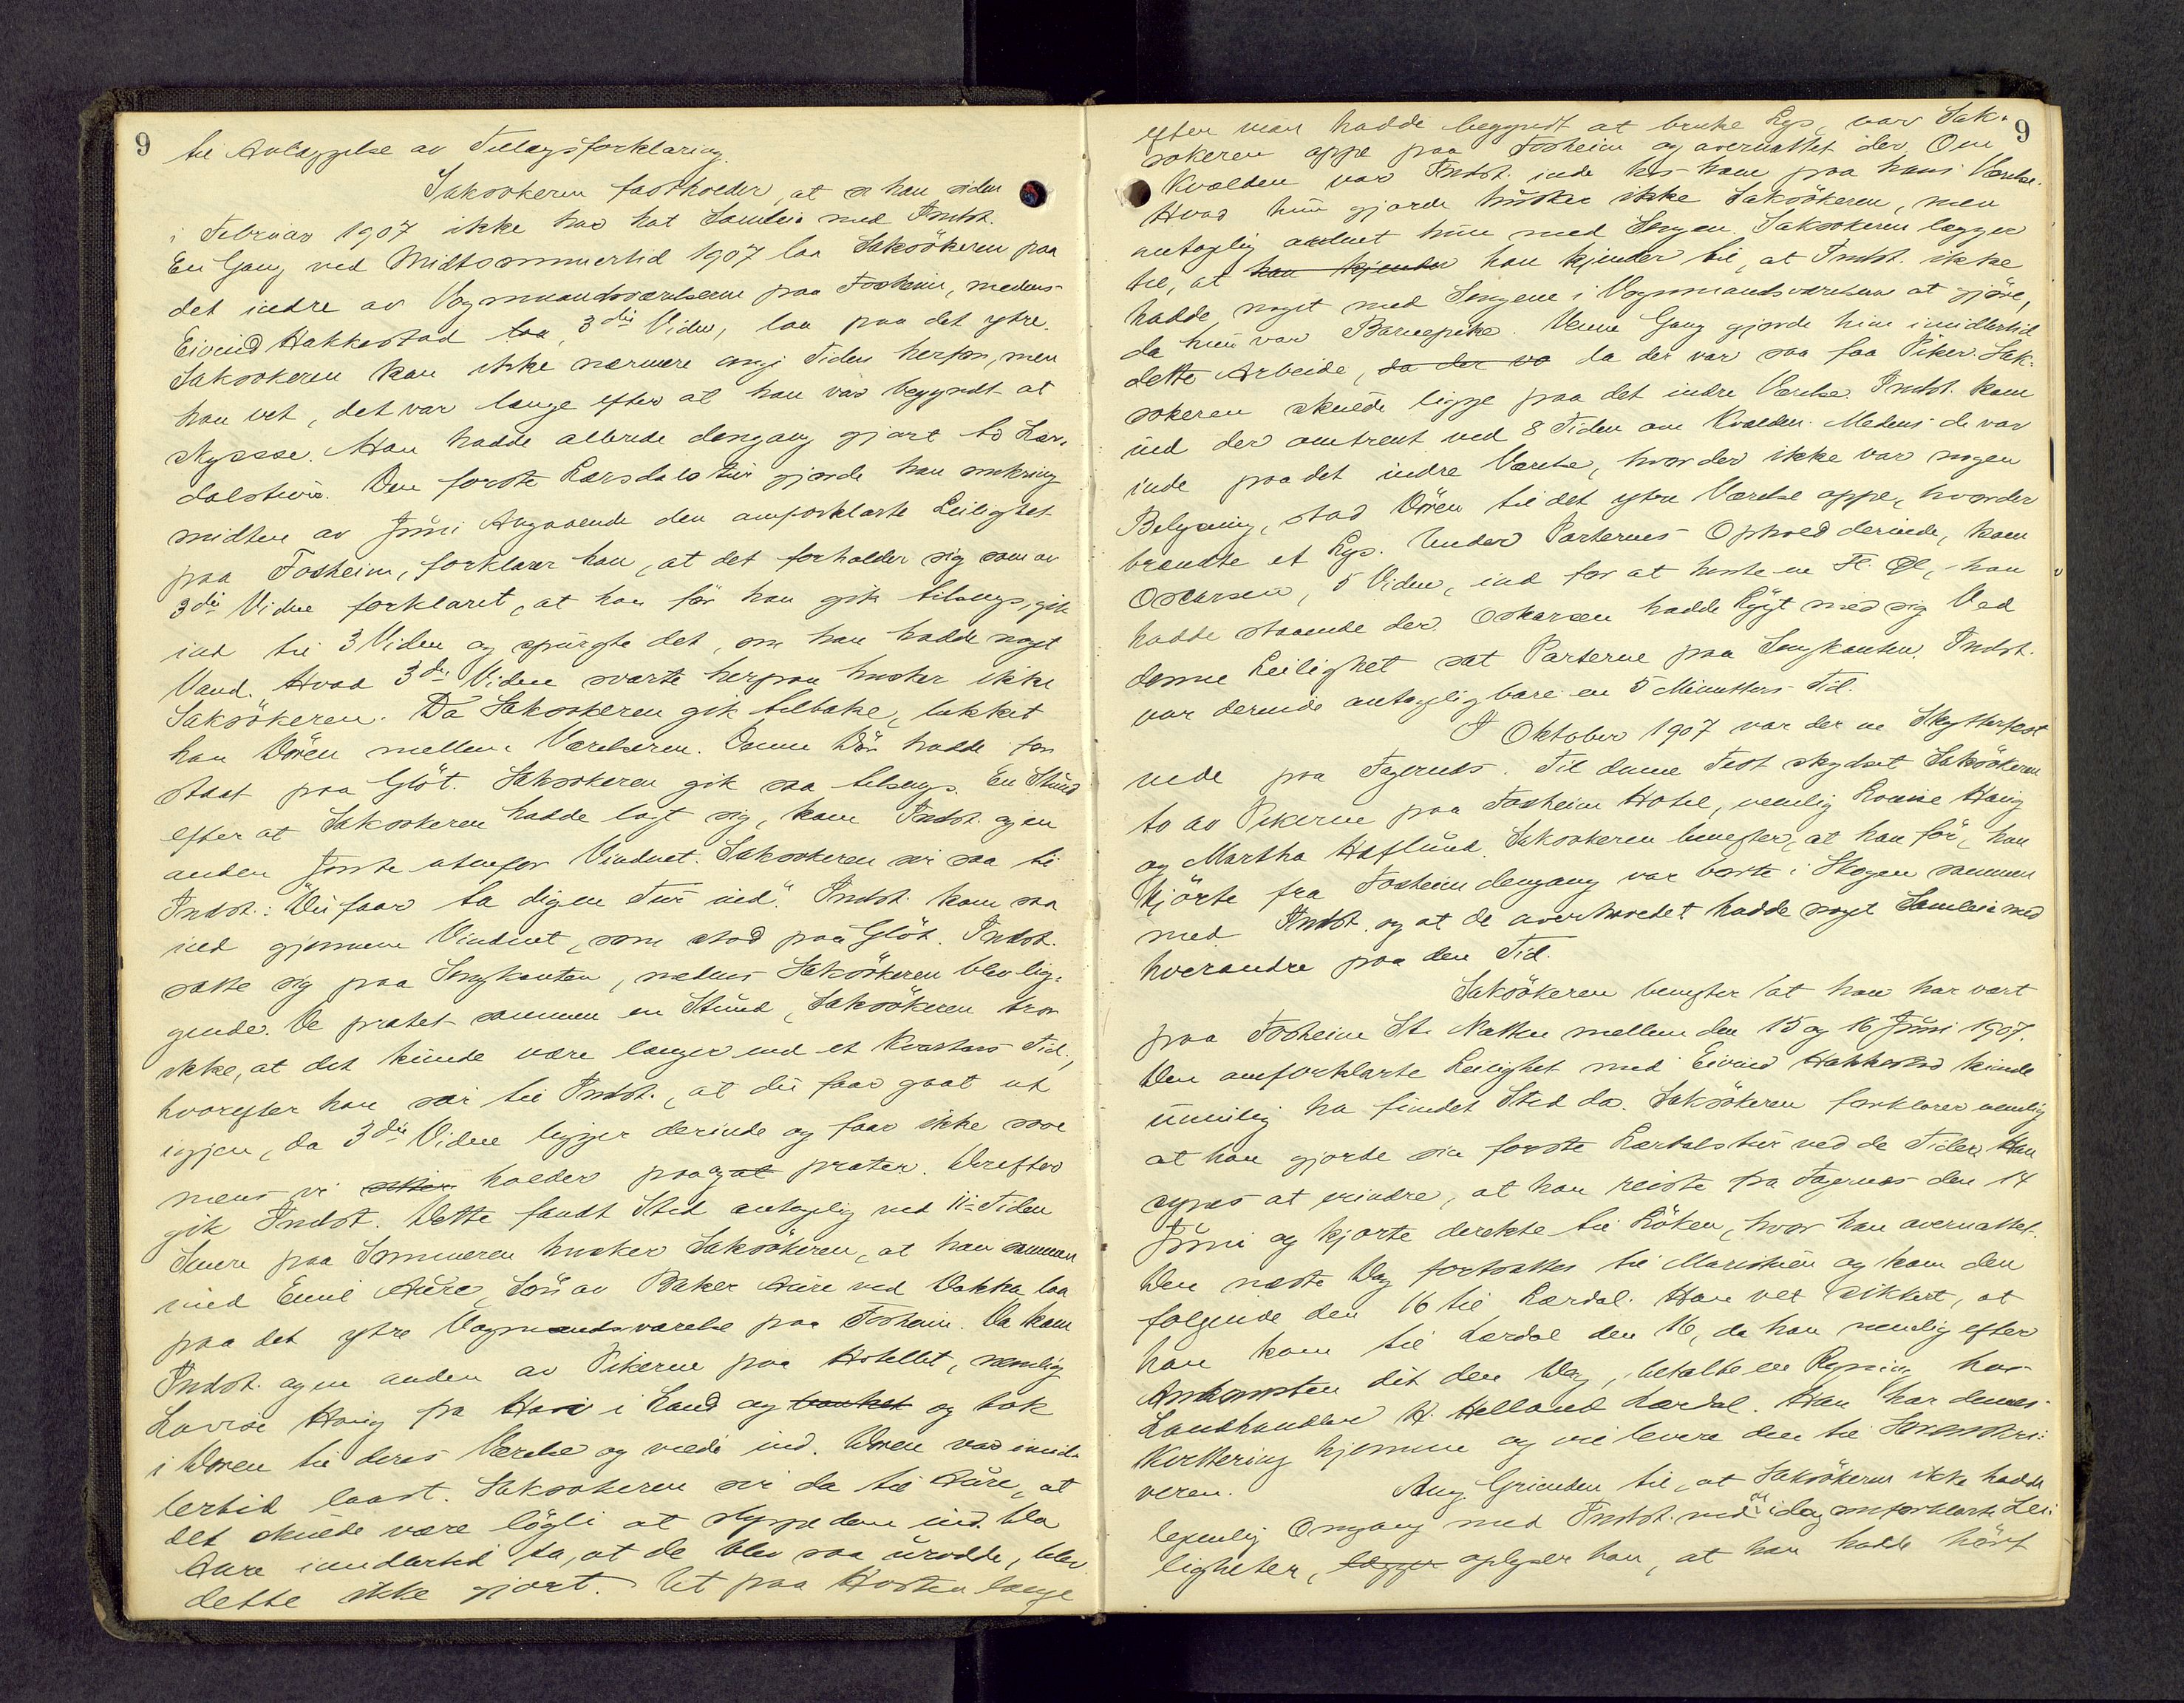 9
til Avlæggelse av Tillægsforklaring.
Saksökeren fastholder, at han siden
i Februar 1907 ikke har hat Samleie med Indst.
En Gang ved Midtsommertid 1907 laa Saksökeren paa
det indre av Vognmandsværelserne paa Fosheim, medens
Eivind Hakkestad laa, 3die Vidne, laa paa det ytre.
Saksökeren kan ikke nærmere angi Tiden herfor, men
han vet, det var længe efter at han var begyndt at
skysse. Han hadde allerede dengang gjort to Lær-
dalsture. Den første Lærsdalstur gjorde han omkring
midten av Juni Angaaende den omforklarte Leilighet
paa Fosheim, forklarer han, at det forholder sig som av
3die Vidne forklaret, at han för han gik tilsengs, gik
ind til 3 Vidne og spurgte det, om han hadde noget
Vand. Hvad 3die Vidne svarte herpaa husker ikke
Saksökeren. Da Saksökeren gik tilbake, lukket
han Dören mellem Værelserne. Denne Dör hadde for
staat paa Glöt. Saksökeren gik saa tilsengs. En Stund
efter at Saksökeren hadde lagt sig, kom Indst. og en
anden Jente utenfor Vinduet. Saksökeren sir saa til
Indst.: "Du faar ta dig en Tur ind". Indst. kom saa
ind gjennem Vinduet, som stod paa Glöt. Indst.
satte sig paa Sengkanten, medens Saksökeren blev lig-
gende. De pratet sammen en Stund, Saksökeren tror
ikke, at det kunde være længer end et Kvarters Tid,
hvorefter han sir til Indst., at du faar gaat ut
igjen, da 3die Vidne ligger derinde og faar ikke sove
mens vi sitter holder paa og at prater. Derefter
gik Indst. Dette fandt Sted antagelig ved 11-Tiden
Senere paa Sommeren husker Saksökeren, at han sammen
med Emil Aure, Sön av Baker Aure ved Dokka laa
paa det ytre Vognmandsværelse paa Fosheim. Da kom
Indst. og en anden av Pikerne paa Hotellet, nemlig
Lovise Haug fra Hov i Land og banket og tok
i Dören til deres Værelse og vilde ind. Dören var imid-
lertid laast. Saksökeren sir da til Aure, at
det skulde være lögli at slyppe dem ind. Da
Aure imidlertid sa, at de blev saa urodde, blev
dette ikke gjort. Ut paa Hösten længe
9
efter man hadde begyndt at bruke Lys, var Sak-
sökeren oppe paa Fosheim og overnattet der. Om
Kvælden var Indst. inde hos ham paa hans Værelse.
Hvad hun gjorde husker ikke Saksökeren, men
antagelig ordnet hun med Sengen. Saksökeren lægger
til, at han kjender han kjender til, at Indst. ikke
hadde noget med Sengene i Vognmandsværelserne at gjöre,
da hun var Barnepike. Denne Gang gjorde hun imidlertid
dette Arbeide, da der va da der var saa faa Piker. Sak-
sökeren skulde ligge paa det indre Værelse. Indst. kom
ind der omtrent ved 8 Tiden om Kvælden. Medens de var
inde paa det indre Værelse, hvor der ikke var nogen
Belysning, stod Dören til det ytre Værelse oppe, hvor der
brændte et Lys. Under Parternes Ophold derinde, kom
Oskarsen, 5 Vidne, ind for at hente en Fl. Öl, han
hadde staaende der. Oskarsen hadde Lygt med sig Ved
denne Leilighet sat Parterne paa Sengkanten. Indst.
var derinde antagelig bare en 5 Minutters Tid.
I Oktober 1907 var der en Skytterfest
nede paa Fagernes. Til denne Fest skydset Saksökeren
to av Pikerne paa Fosheim Hotel, nemlig Lovise Haug
og Martha Haflund. Saksökeren benegter, at han för, han
kjörte fra Fosheim dengang var borte i Skogen sammen
med Indst. og at de overhodet hadde noget Samleie med
hverandre paa den Tid.
Saksökeren benegter at han har vært
paa Fosheim St. Natten mellem den 15 og 16 Juni 1907.
Den omforklarte Leilighet med Eivind Hakkestad kunde
umulig ha fundet Sted da. Saksökeren forklarer nemlig
at han gjorde sin förste Lærdalstur ved de Tider. Han
synes at erindre, at han reiste fra Fagernes den 14
Juni og kjörte direkte til Löken, hvor han overnattet.
Den næste Dag fortsattes til Maristuen og kom den
følgende den 16 til Lærdal. Han vet sikkert, at
han kom til Lærdal den 16, da han nemlig efter
Ankomsten dit den Dag, betalte en Regning hos
Landhandler H. Helland Lærdal. Han har dennes
Kvittering hjemme og vil levere den til Sorenskri-
veren.
Ang. Grunden til, at Saksökeren ikke hadde
legemlig Omgang med Indst. ved de idag omforklarte Lei-
ligheter, lægger oplyser han, at han hadde hört